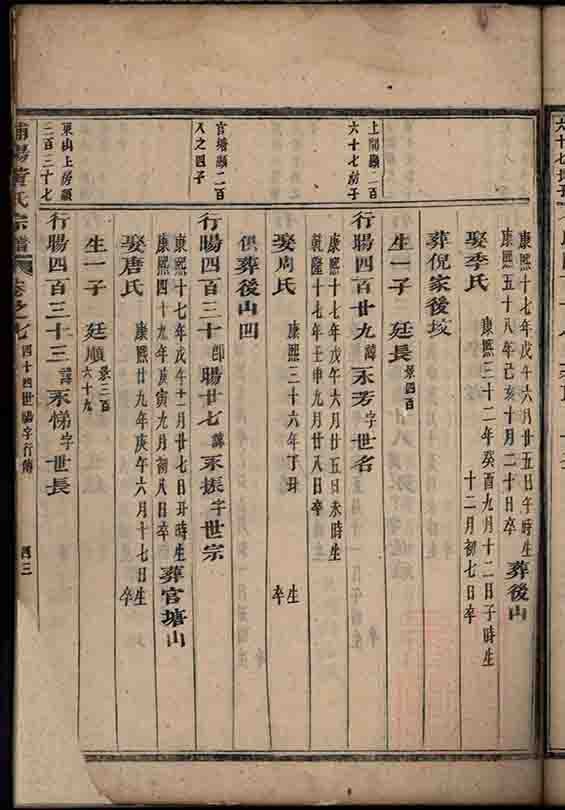 康熙十七年戊午六月廿五日午時生
康熙五十八年己亥十月二十日卒
葬後山
娶李氏
康熙三十二年癸酉九月十二日子時生
十二月初七日卒
葬倪家後坟
生一子 廷長
景四百
上間顯二百
六十七房子
行暘四百廿九諱永芳字世名
康熙十七年戊午六月廿五日未時生
乾隆十七年壬申九月廿八日卒
娶周氏
康熙三十六年丁丑 生
卒
俱葬後山凹
官塘顯二百
八之四子
行暘四百三十即暘廿七諱永振字世宗
康熙十七年戊午十一月廿七日丑時生
康熙四十九年庚寅九月初八日卒
葬官塘山
娶唐氏
康熙廿九年庚午六月十七日生
卒
生一子 廷順
景三百
六十九
東山上房顯
二百三十七
行暘四百三十三諱永悌字世長
浦陽黃氏宗譜
卷之七
四十四世暘字行傳
四三
六十七